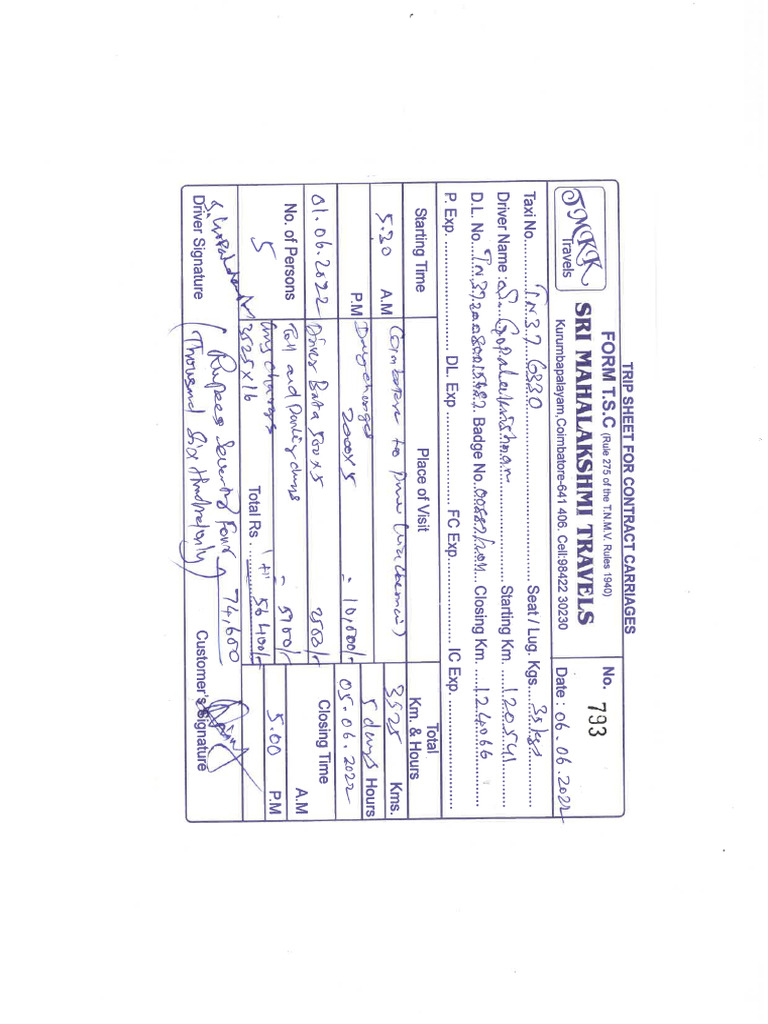 TRIP SHEET FOR CONTRACT CARRIAGES
FORM T.S.C (Rule 275 of the T.N.M.V. Rules 1940)
No. 793
TMKK
Travels
SRI MAHALAKSHMI TRAVELS
Kurumbapalayam,Coimbatore-641 406. Cell:98422 30230
Date : 06.06.2022
Taxi No. TN37 6320 Seat / Lug. Kgs. 35kgs
Driver Name : S. Gopalakrishnan Starting Km. 120541
D.L. No. Badge No. Closing Km. 124066
P. Exp. DL. Exp FC Exp. IC Exp.
Starting Time
Place of Visit
Total
Km. & Hours
5.30 A.M
Coimbatore to Pune (via Chennai)
3525 Kms.
P.M
Day charges
2000 X 5 = 10,000/-
5 days Hours
01.06.2022
Driver Bata 500 X 5 2500/-
05.06.2022
No. of Persons
Toll and Parking = 5900/-
Closing Time
A.M
5
charges
3525 X 16 56400/-
Total Rs. 74,600
5.00 P.M
(Rupees Seventy Four
Thousand Six Hundred only)
Driver Signature
Customer's Signature